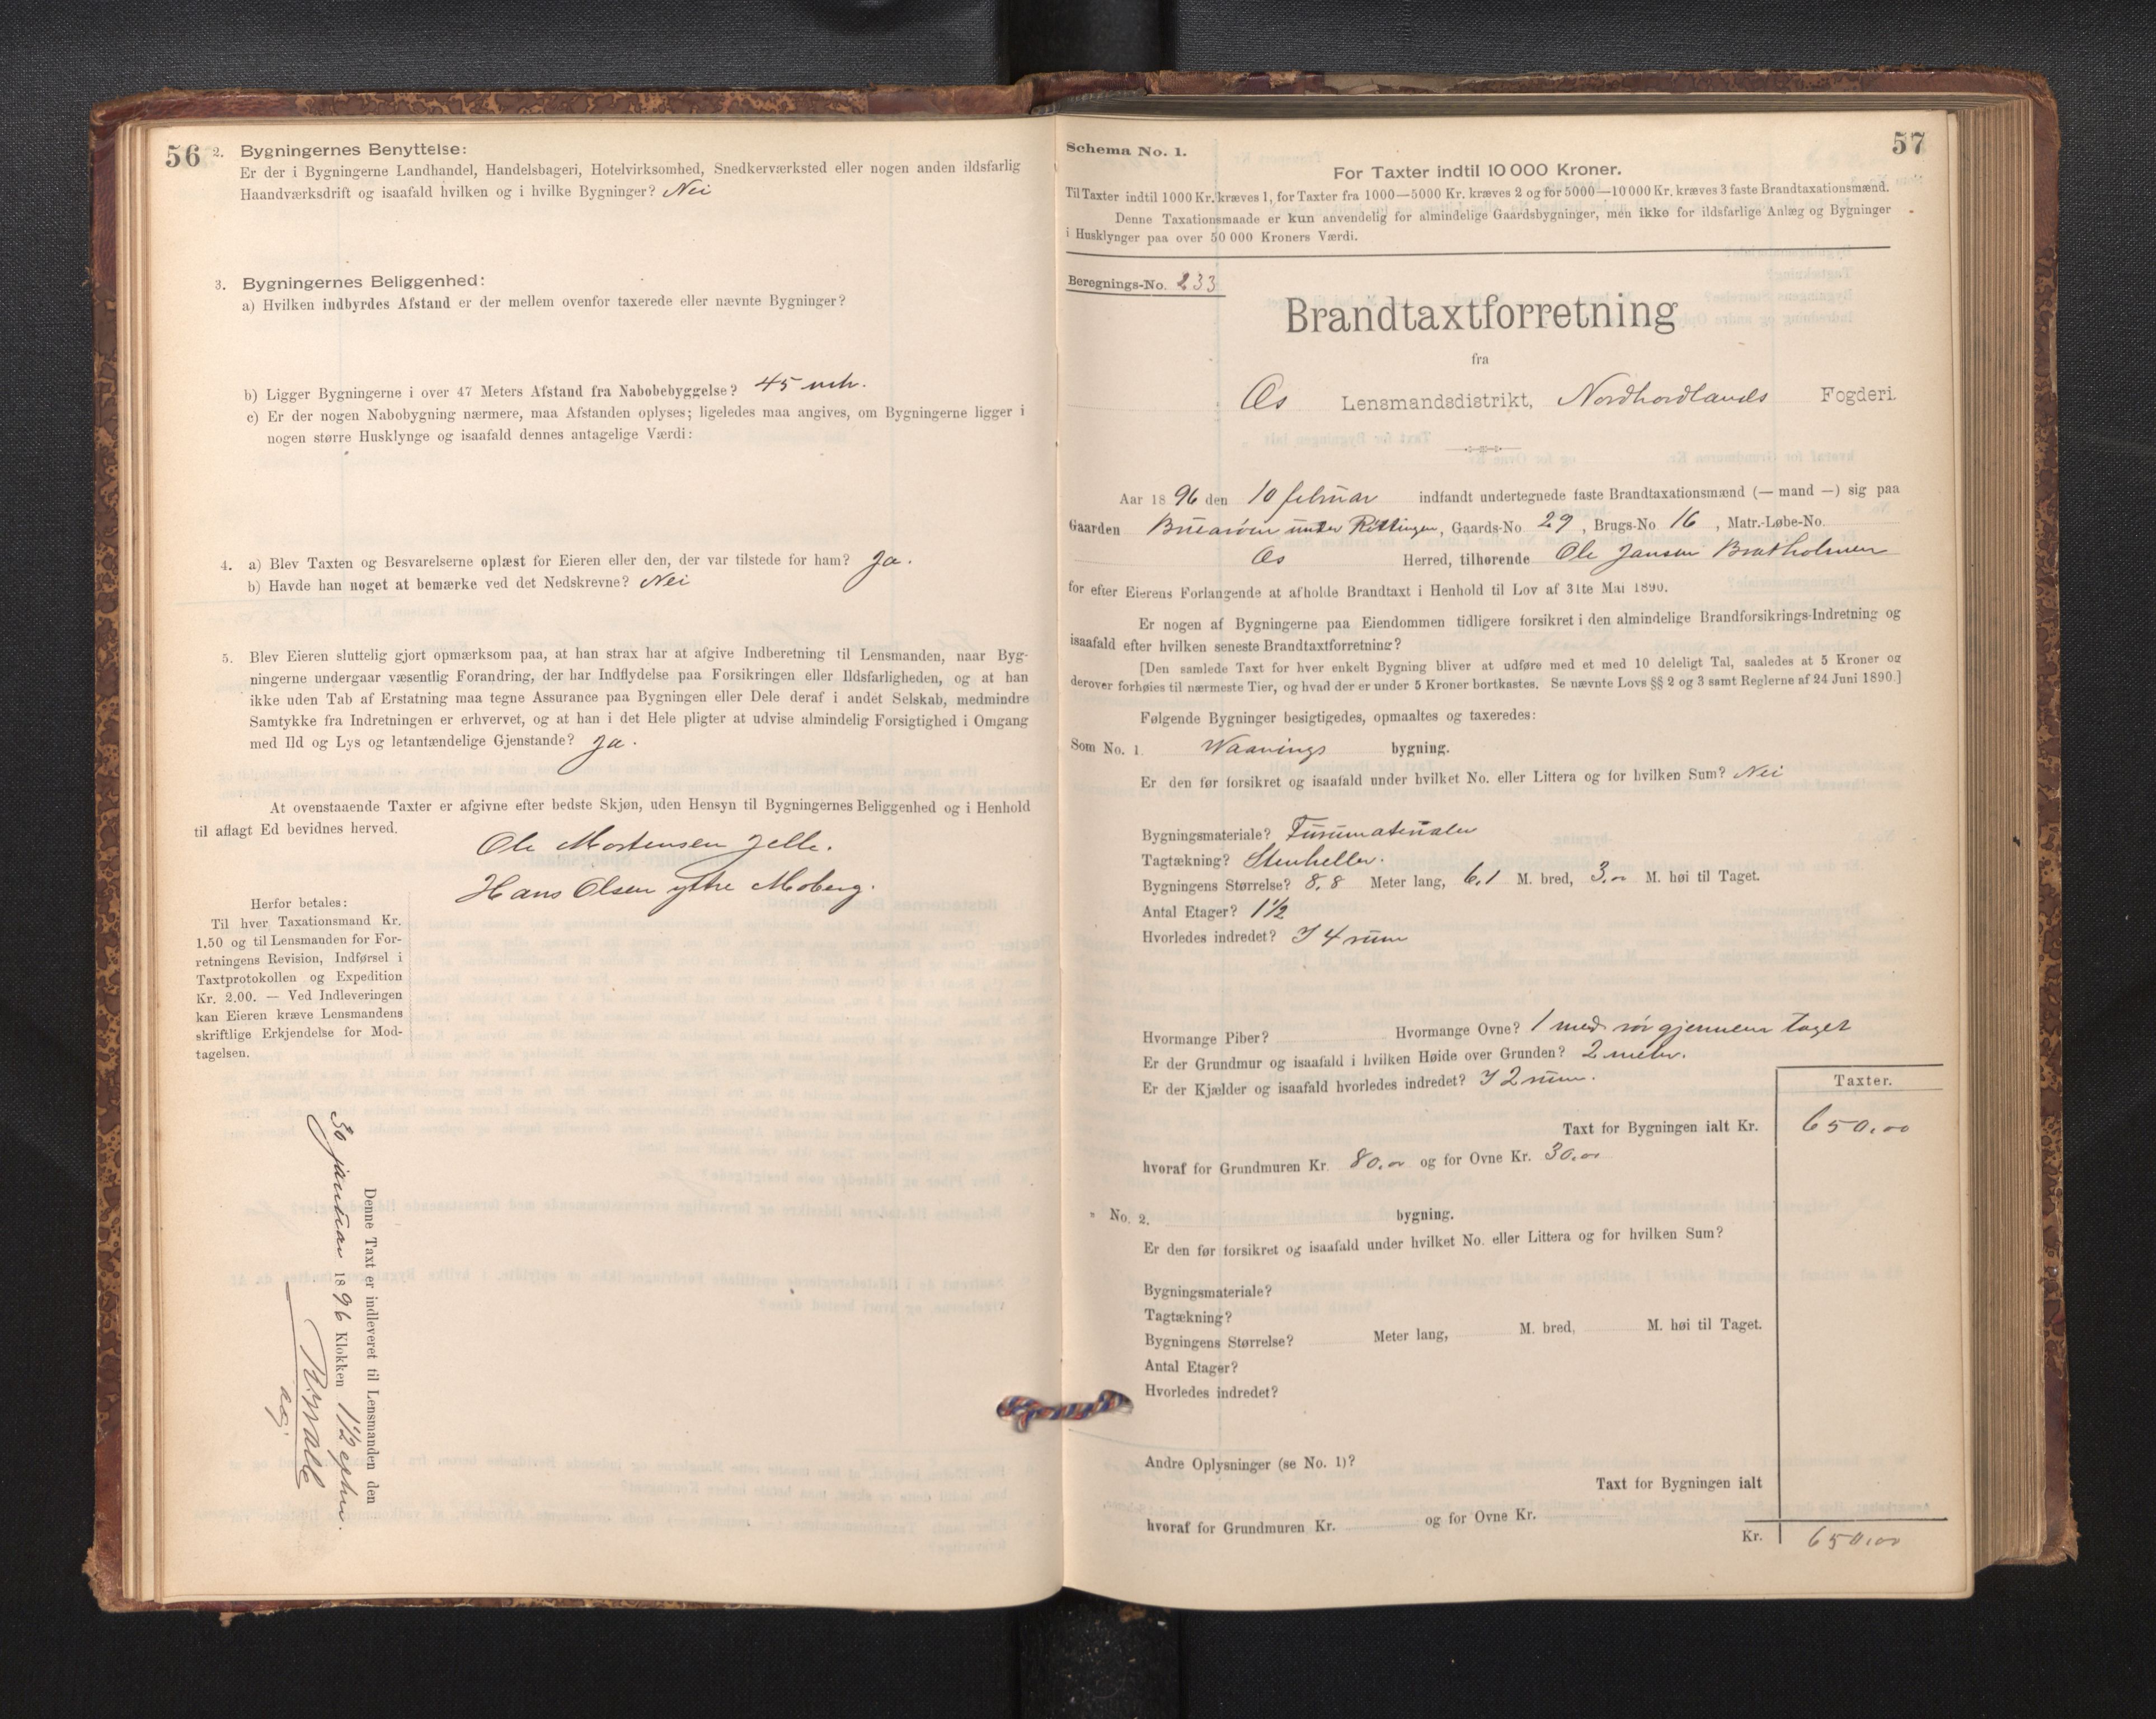 56
2. Bygningernes Benyttelse:
Er der i Bygningerne Landhandel, Handelsbageri, Hotelvirksomhed, Snedkerværksted eller nogen anden ildsfarlig
Haandværksdrift og isaafald hvilken og i hvilke Bygninger? Nei
3. Bygningernes Beliggenhed:
a) Hvilken indbyrdes Afstand er der mellem ovenfor taxerede eller nævnte Bygninger?
b) Ligger Bygningerne i over 47 Meters Afstand fra Nabobebyggelse? 45 mtr.
c) Er der nogen Nabobygning nærmere, maa Afstanden oplyses; ligeledes maa angives, om Bygningerne ligger i
nogen større Husklynge og isaafald dennes antagelige Værdi:
4. a) Blev Taxten og Besvarelserne oplæst for Eieren eller den, der var tilstede for ham? Ja.
b) Havde han noget at bemærke ved det Nedskrevne? Nei
5. Blev Eieren sluttelig gjort opmærksom paa, at han strax har at afgive Indberetning til Lensmanden, naar Byg-
ningerne undergaar væsentlig Forandring, der har Indflydelse paa Forsikringen eller Ildsfarligheden, og at han
ikke uden Tab af Erstatning maa tegne Assurance paa Bygningen eller Dele deraf i andet Selskab, medmindre
Samtykke fra Indretningen er erhvervet, og at han i det Hele pligter at udvise almindelig Forsigtighed i Omgang
med Ild og Lys og letantændelige Gjenstande? Ja.
At ovenstaaende Taxter er afgivne efter bedste Skjøn, uden Hensyn til Bygningernes Beliggenhed og i Henhold
til aflagt Ed bevidnes herved.
Ole Mortensen Jelle.
Hans Olsen ytre Moberg.
Herfor betales:
Til hver Taxationsmand Kr.
1.50 og til Lensmanden for For-
retningens Revision, Indførsel i
Taxtprotokollen og Expedition
Kr. 2.00. — Ved Indleveringen
kan Eieren kræve Lensmandens
skriftlige Erkjendelse for Mod-
tagelsen.
Denne Taxt er indleveret til Lensmanden den
30 januar 1896 Klokken 1½ efthm.
57
Schema No. 1.
For Taxter indtil 10 000 Kroner.
Til Taxter indtil 1000 Kr. kræves 1, for Taxter fra 1000—5000 Kr. kræves 2 og for 5000—10 000 Kr. kræves 3 faste Brandtaxationsmænd.
Denne Taxationsmaade er kun anvendelig for almindelige Gaardsbygninger, men ikke for ildsfarlige Anlæg og Bygninger
i Husklynger paa over 50 000 Kroners Værdi.
Beregnings-No. 233
Brandtaxtforretning
fra
Os Lensmandsdistrikt, Nordhordlands Fogderi.
Aar 1896 den 10 februar indfandt undertegnede faste Brandtaxationsmænd (— mand —) sig paa
Gaarden under Röttingen, Gaards-No. 29, Brugs-No 16, Matr.-Løbe-No.
Os Herred, tilhørende Ole Jansen Bratholmen
for efter Eierens Forlangende at afholde Brandtaxt i Henhold til Lov af 31te Mai 1890.
Er nogen af Bygningerne paa Eiendommen tidligere forsikret i den almindelige Brandforsikrings-Indretning og
isaafald efter hvilken seneste Brandtaxtforretning?
[Den samlede Taxt for hver enkelt Bygning bliver at udføre med et med 10 deleligt Tal, saaledes at 5 Kroner og
derover forhøies til nærmeste Tier, og hvad der er under 5 Kroner bortkastes. Se nævnte Lovs §§ 2 og 3 samt Reglerne af 24 Juni 1890]
Følgende Bygninger besigtigedes, opmaaltes og taxeredes:
Som No. 1. Waanings bygning.
Er den før forsikret og isaafald under hvilket No. eller Littera og for hvilken Sum? Nei
Bygningsmateriale? Furumaterialer
Tagtækning? Stenheller.
Bygningens Størrelse? 8,8 Meter lang, 6,1 M. bred, 3,00 M. høi til Taget.
Antal Etager? 1½
Hvorledes indredet? I 4 rum
Hvormange Piber? Hvormange Ovne? 1 med rør gjennem taget
Er der Grundmur og isaafald i hvilken Høide over Grunden? 2 meter.
Er der Kjælder og isaafald hvorledes indredet? I 2 rum.
Taxter.
Taxt for Bygningen ialt Kr. 650,00
hvoraf for Grundmuren Kr. 80,00 og for Ovne Kr. 30,00
" No. 2. bygning.
Er den før forsikret og isaafald under hvilket No. eller Littera og for hvilken Sum?
Bygningsmateriale?
Tagtækning?
Bygningens Størrelse? Meter lang, M. bred, M. høi til Taget.
Antal Etager?
Hvorledes indredet?
Andre Oplysninger (se No. 1)?
Taxt for Bygningen ialt
hvoraf for Grundmuren Kr. og for Ovne Kr.
Kr. 650,00